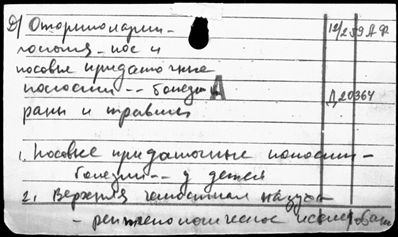 Д) Оториноларингология - нос и
носовые придаточные
полости -- болезни
раны и травмы
12/259 АФ
А
Д 20364
1. Носовые придаточные полости -
болезни -- у детей
2. Верхняя челюстная пазуха
- рентгенологическое исследован